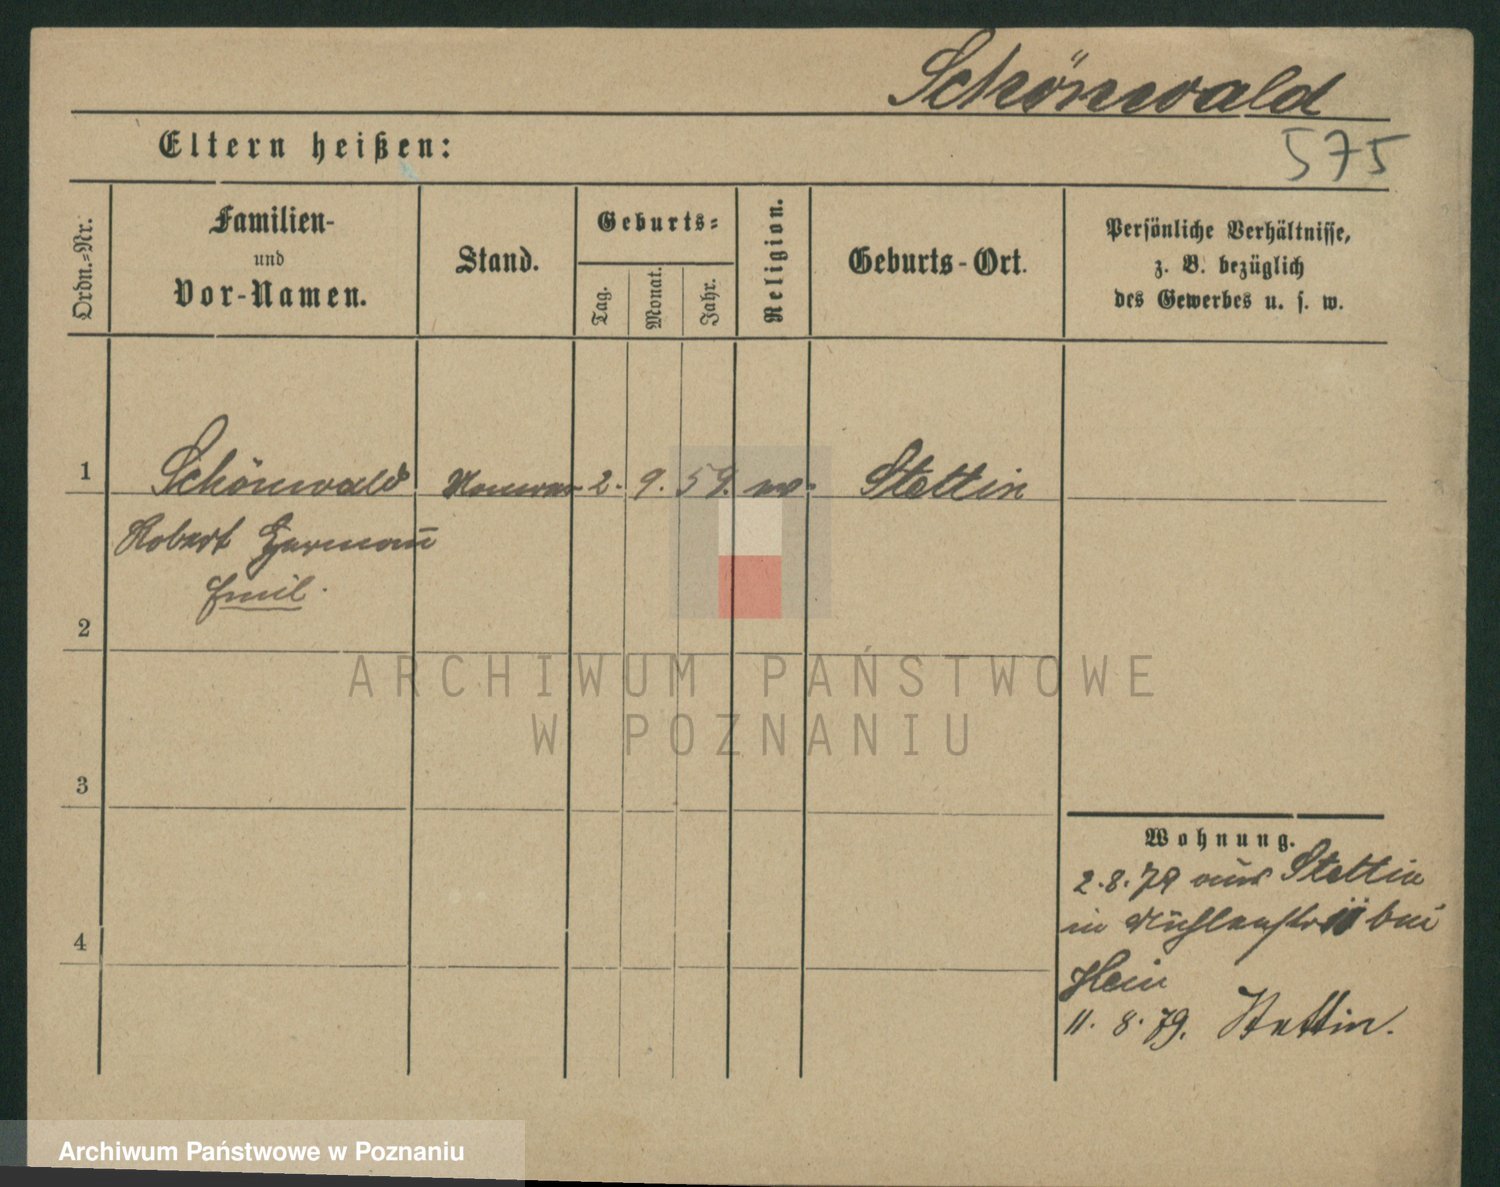 Schönwald
575
Eltern heißen:
Ordn.=Nr.
Familien-
und
Vor-Namen.
Stand.
Geburts=
Tag.
Monat.
Jahr.
Religion.
Geburts-Ort.
Persönliche Verhältnisse,
z. B. bezüglich
des Gewerbes u. s. w.
1
Schönwald 2. 9. 59. Stettin
Robert Herman̄
Emil.
2
ARCHIWUM PAŃSTWOWE
W POZNANIU
3
Wohnung.
2.8.79 aus Stettin
in Mühlenstr 11 bei
Hein
4
11. 8. 79. Stettin.
Archiwum Państwowe w Poznaniu